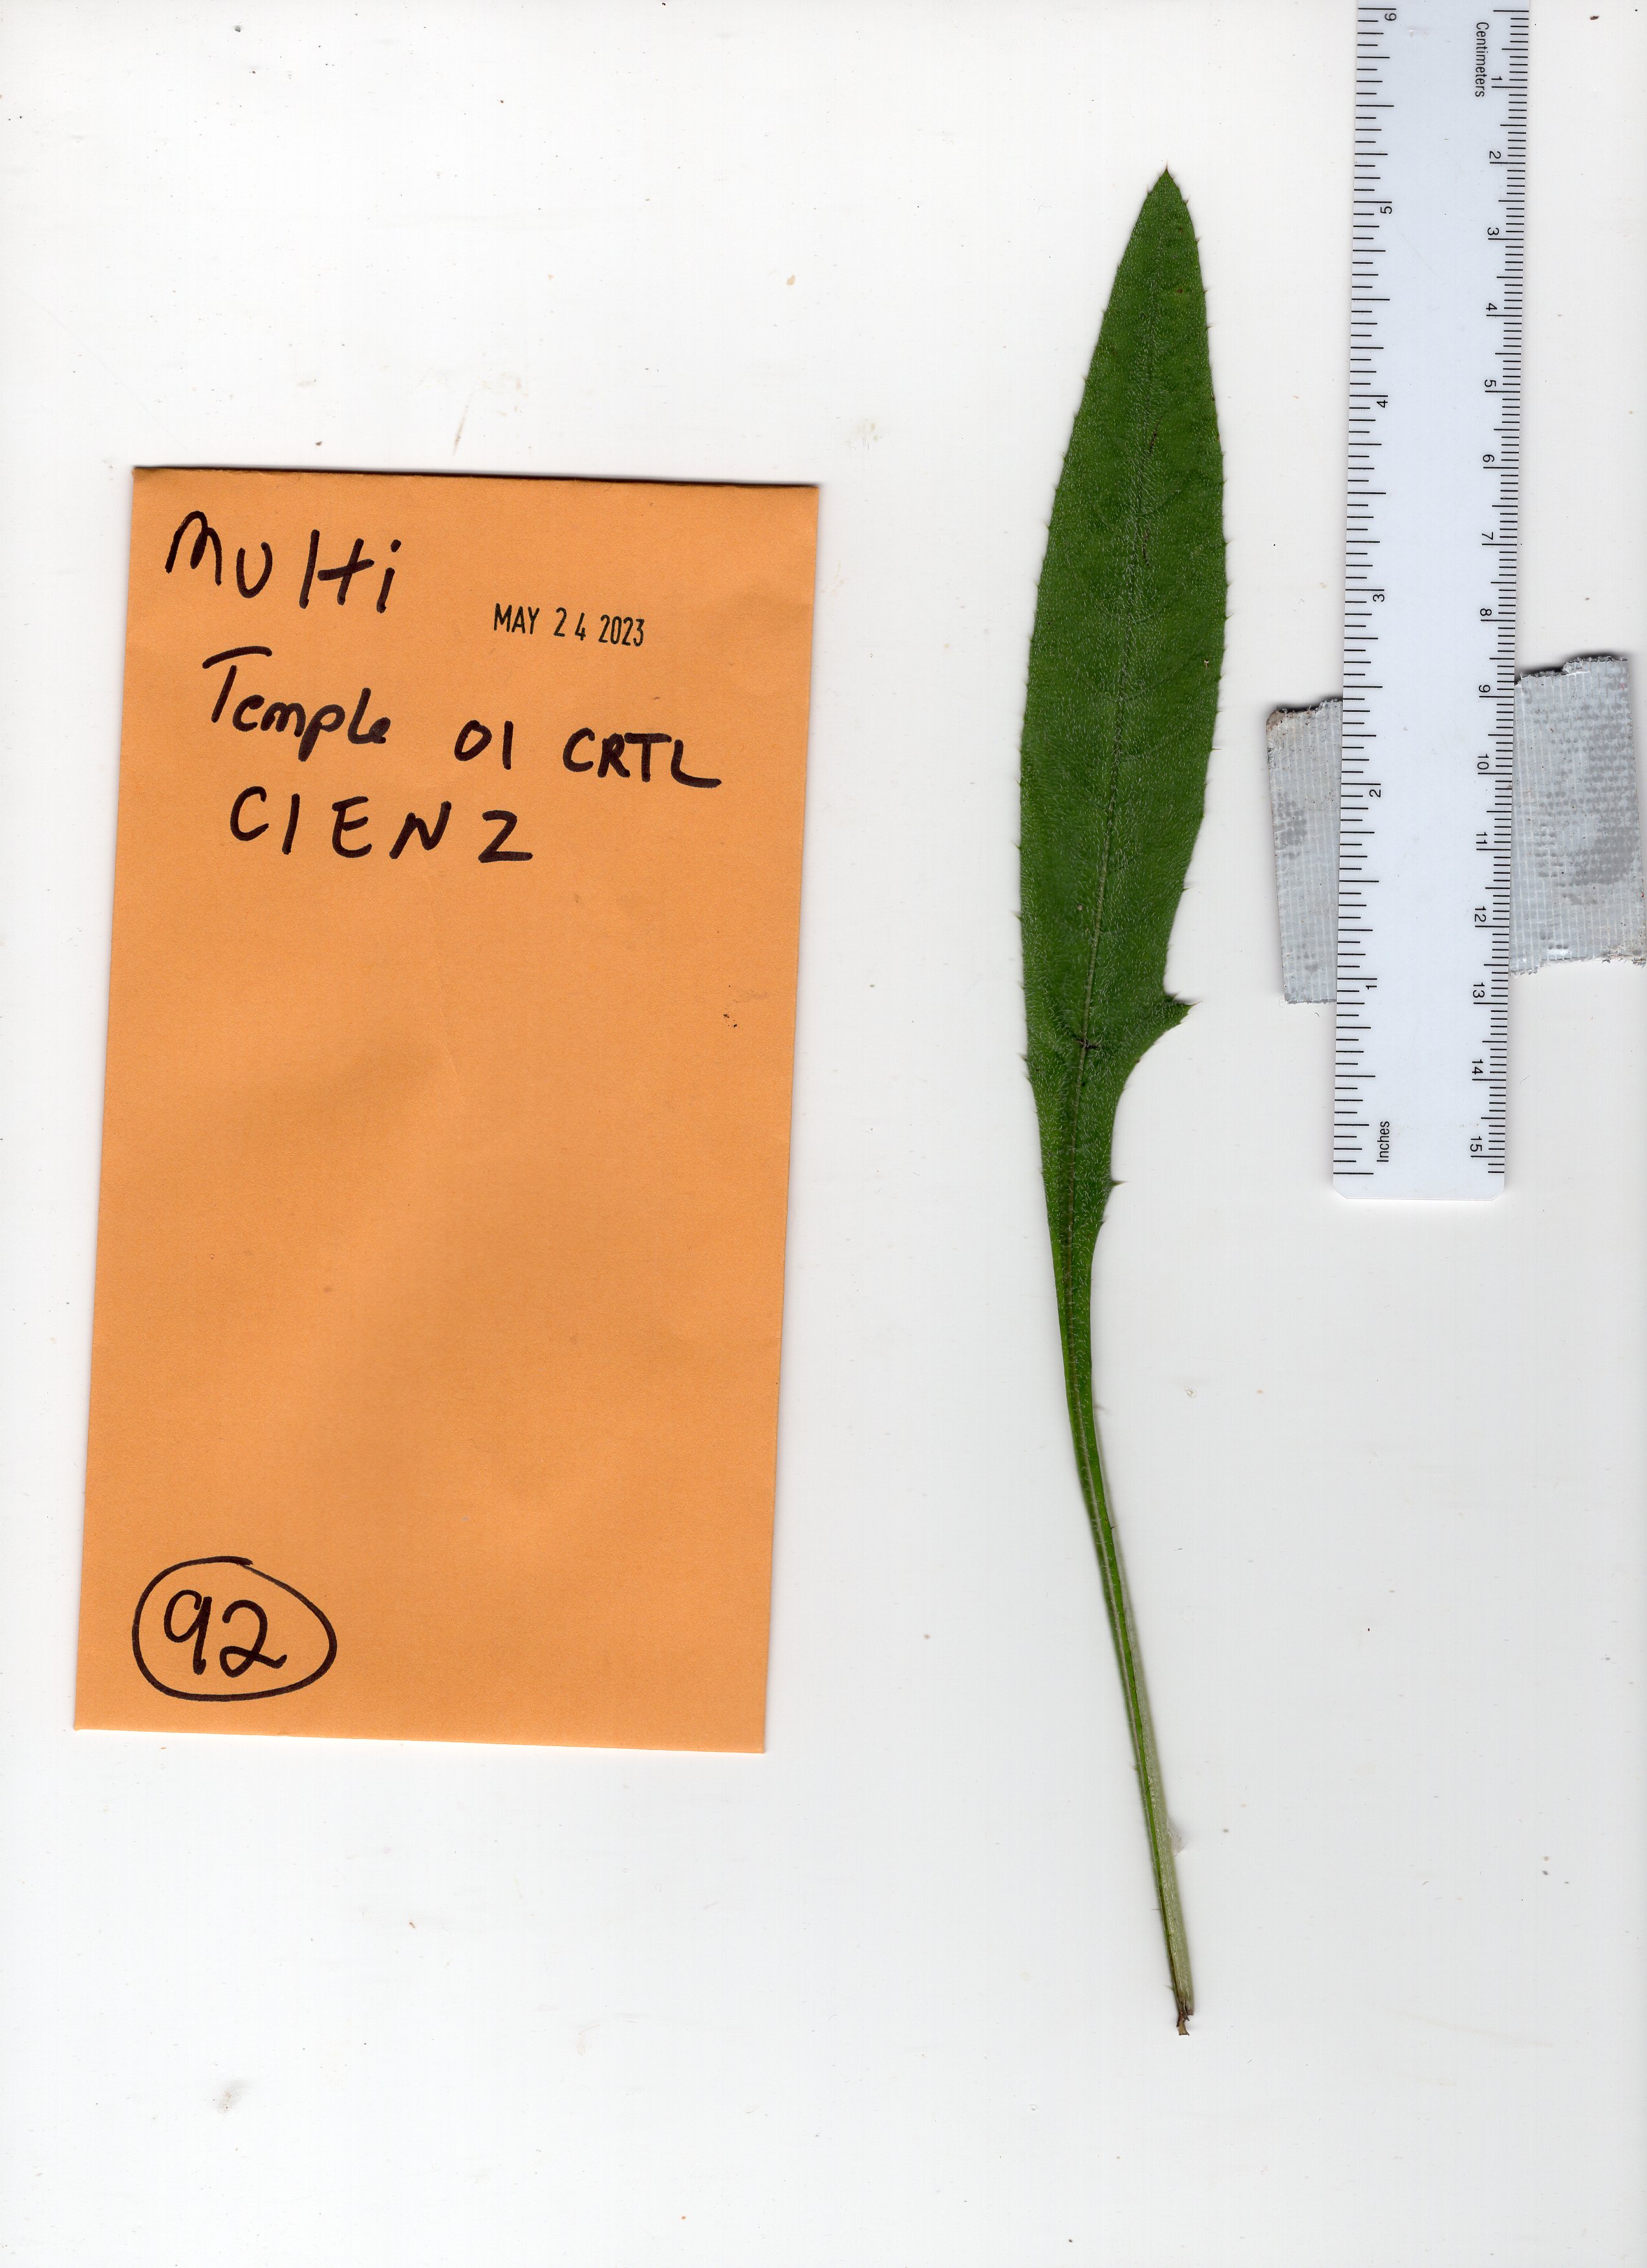 Multi
MAY 24 2023
Temple 01 CRTL
CIEN2
92
Centimeters
1
2
3
4
5
6
7
8
9
10
11
12
13
14
15
6
5
4
3
2
1
Inches